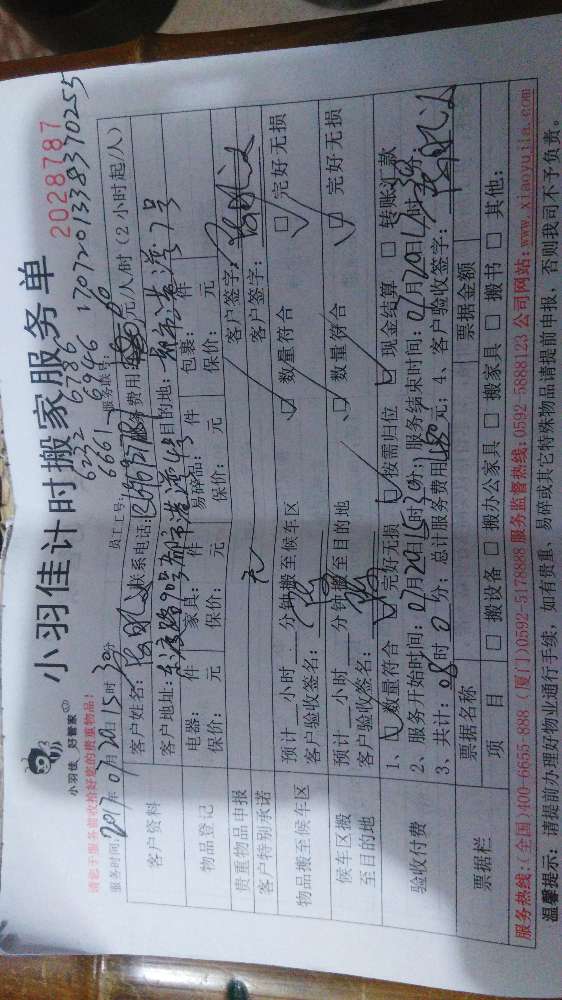 小羽佳 好管家
小羽佳计时搬家服务单
2028787
请您于服务前收拾好您的贵重物品!
员工工号: 6232 6786
6661 6946
服务帐号: 17072013383370255
服务时间: 2017年07月20日15时30分
服务费用: 元/人/时 (2小时起/人)
客户资料
客户姓名:
联系电话:
客户地址:
目的地: 都市港湾7号
物品登记
电器: 件 家具: 件 易碎品: 件 包裹: 件
保价: 元 保价: 元 保价: 元 保价: 元
贵重物品申报
无
客户签字:
客户特别承诺
客户签字:
物品搬至候车区
预计 小时 分钟搬至候车区 □ 数量符合 □ 完好无损
客户验收签名:
候车区搬
至目的地
预计 小时 分钟搬至目的地 □ 数量符合 □ 完好无损
客户验收签名:
验收付费
1、□ 数量符合 □ 完好无损 □ 按需归位 □ 现金结算 □ 转账汇款
2、服务开始时间: 07月20日15时30分; 服务结束时间: 07月20日
3、共计: 时 0分; 总计服务费用 元; 4、客户验收签字:
票据栏
票据名称 票据金额
项 目 □ 搬设备 □ 搬办公家具 □ 搬家具 □ 搬书 □ 其他:
服务热线:(全国)400-6655-888 (厦门)0592-5178888 服务监督热线:0592-5888123 公司网站:www.xiaoyujia.com
温馨提示: 请提前办理好物业通行手续, 如有贵重、易碎或其它特殊物品请提前申报, 否则我司不予负责。